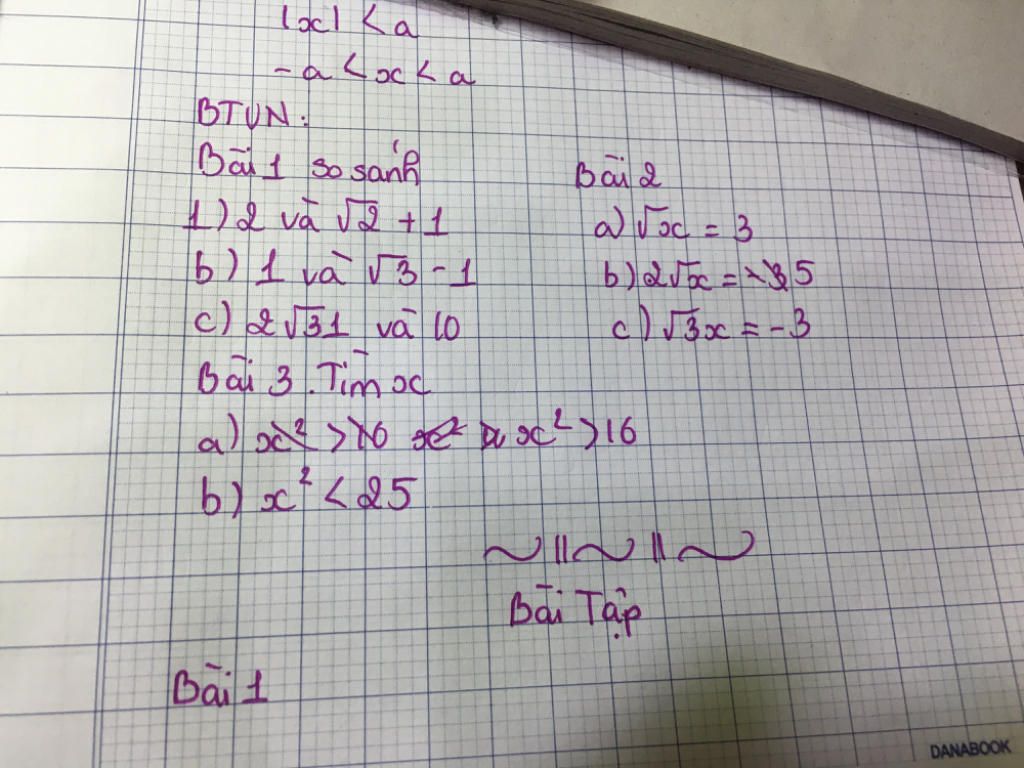 |x| < a
-a < x < a
BTVN:
Bài 1 so sánh
1) 2 và √2 + 1
b) 1 và √3 - 1
c) 2√31 và 10
Bài 2
a) √x = 3
b) 2√x = 5
c) √3x = -3
Bài 3. Tìm x
a) x² > 16 x² x² > 16
b) x² < 25
Bài Tập
Bài 1
DANABOOK